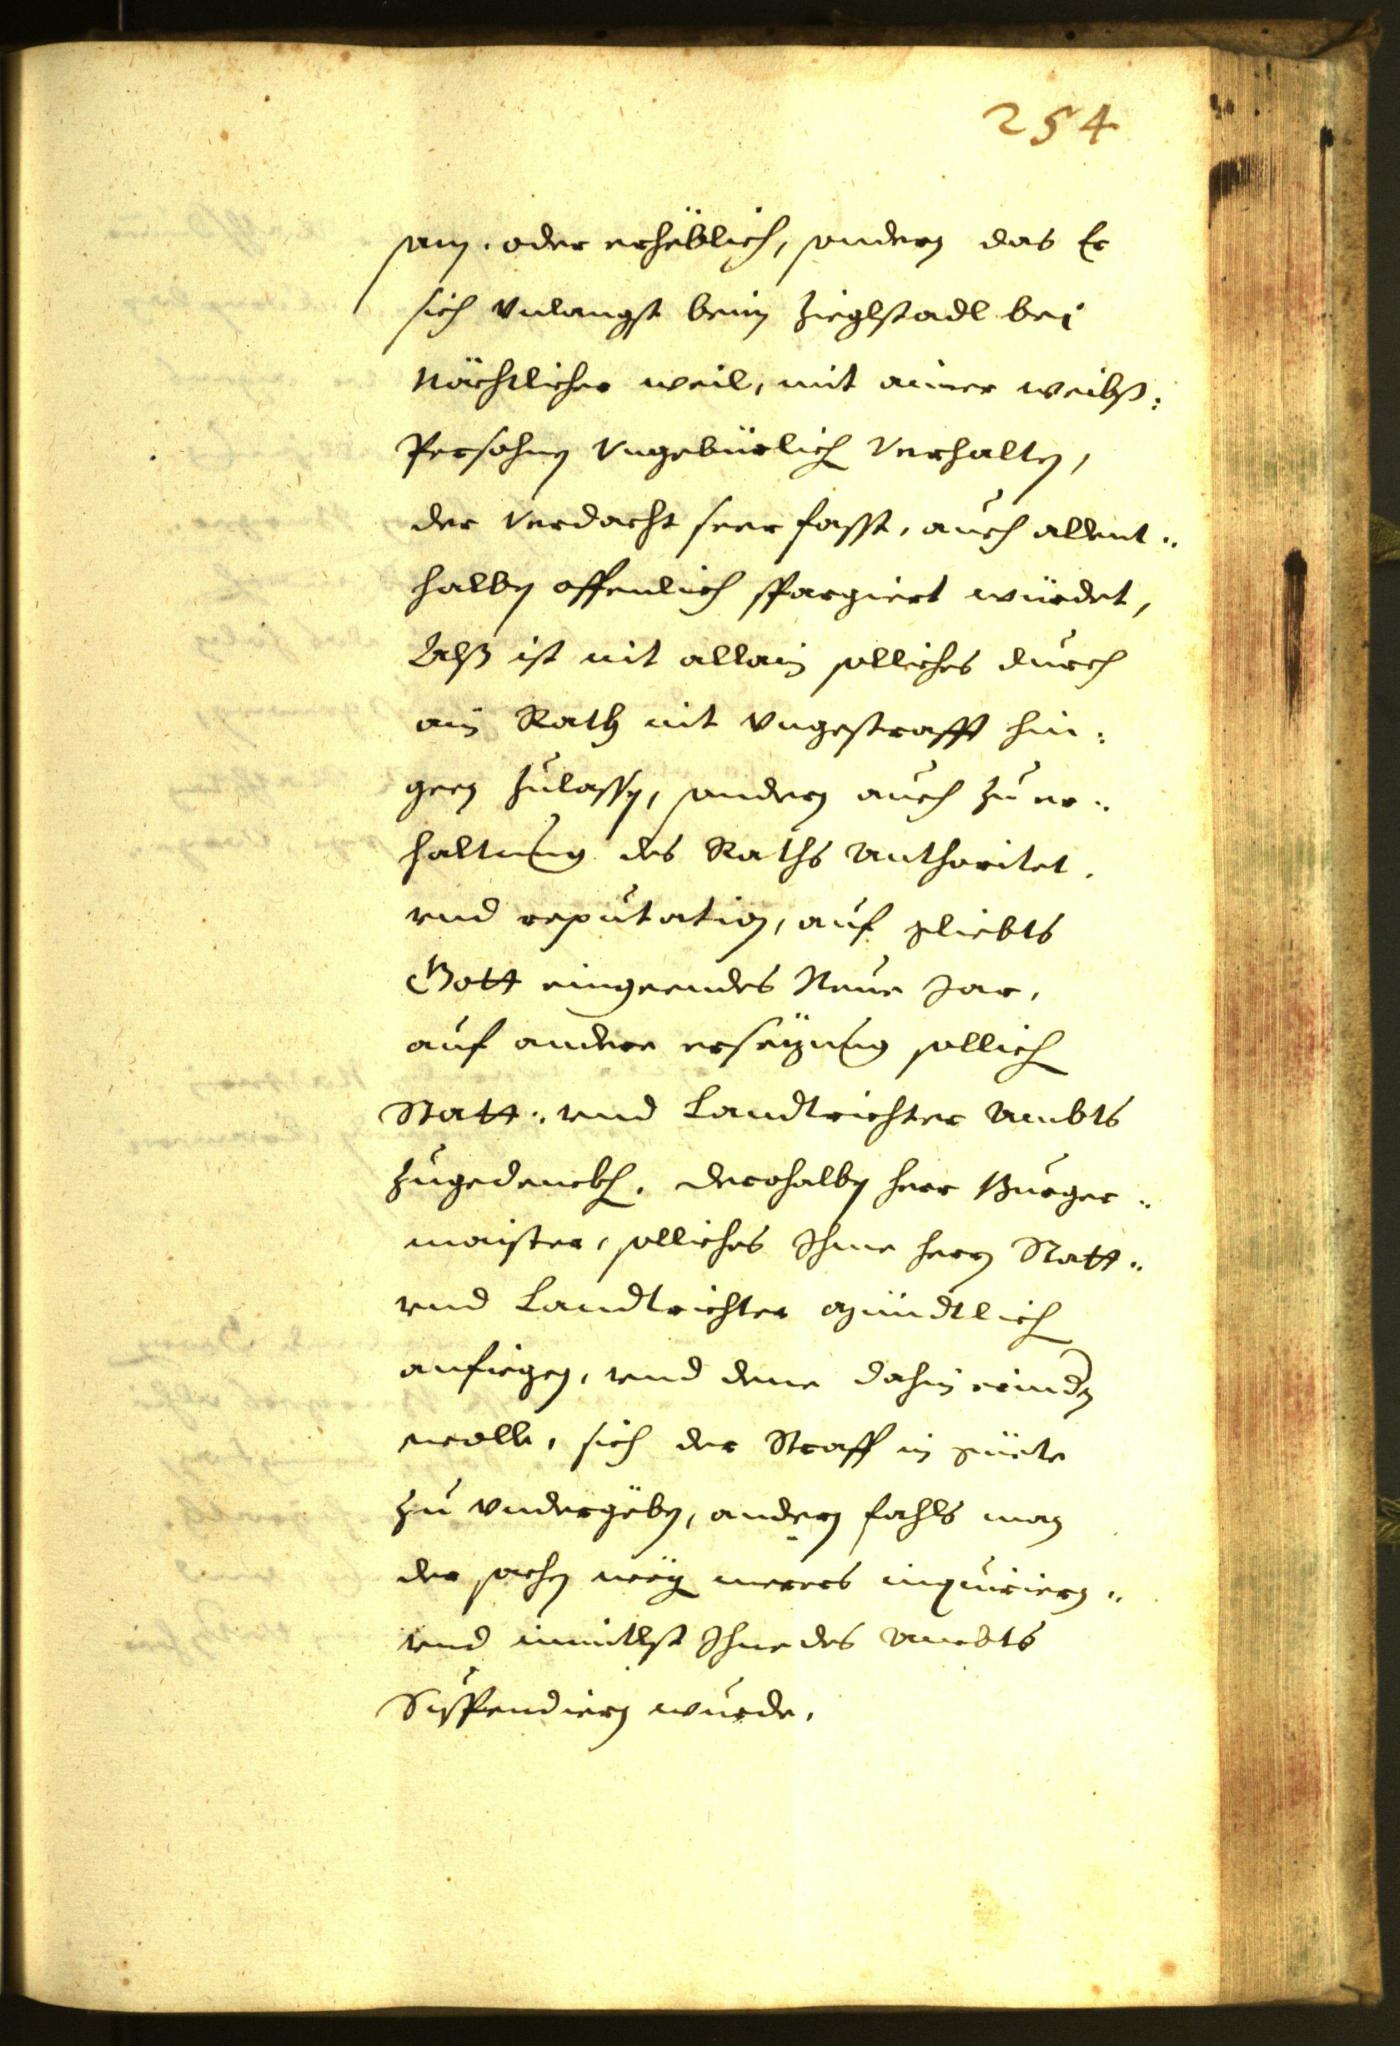 254
sam. oder erhëblich, sondern das Er
sich vnlangst beim Zieglstadl bei
Nächtlicher weil, mit ainer weibß:
Persohn vngebürlich verhalten,
der verdacht seer fasst, auch allent„
halben offenlich spargiert würdet,
Alß ist nit allain solliches durch
ain Rath nit vngestrafft hin:
geen zulassen, sondern auch zu er„
haltung des Raths Authoritet.
vnd reputation, auf gliebts
Gott eingeendes Neue Jar,
auf andere ersäzung sollich
Statt„ vnd Landtrichter Ambts
zugedenckh. derohalben herr Burger„
maister, solliches Ihme herrn Statt„
vnd Landtrichter mündtlich
anfiegen, vnd dene dahin erindern
wolle, sich der Straff in güete
zu vndergëben, andern fahls man
der sachen merers inquiriern„
vnd inmitlst Ihne des Ambts
Suspendiern wurde.